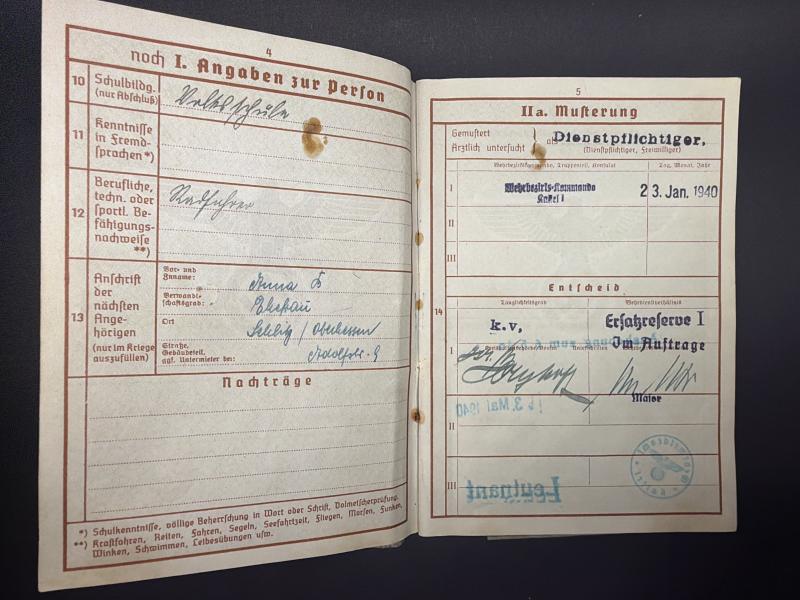 4
noch I. Angaben zur Person
10 Schulbildg. (nur Abschluß)
Volksschule
11 Kenntnisse in Fremd-
sprachen *)
12 Berufliche,
techn. oder
sportl. Be-
fähigungs-
nachweise
**)
Radfahrer
13 Anschrift
der
nächsten
Ange-
hörigen
(nur im Kriege
auszufüllen)
Vor- und
Zuname:
Anna
Verwandt-
schaftsgrad:
Ehefrau
Ort
Schlitz / Oberhessen
Straße,
Gebäudeteil,
ggf. Untermieter bei:
Adolfstr. 9
Nachträge
*) Schulkenntnisse, völlige Beherrschung in Wort oder Schrift, Dolmetscherprüfung.
**) Kraftfahren, Reiten, Fahren, Segeln, Seefahrtzeit, Fliegen, Morsen, Funken,
Winken, Schwimmen, Leibesübungen usw.
5
IIa. Musterung
Gemustert
Ärztlich untersucht } als Dienstpflichtiger,
(Dienstpflichtiger, Freiwilliger)
Wehrbezirkskommando, Truppenteil, Konsulat
Tag, Monat, Jahr
I
Wehrbezirks-Kommando
Kassel I
23. Jan. 1940
II
III
Entscheid
14
Tauglichkeitsgrad
Wehrdienstverhältnis
k.v.
Ersatzreserve I
I
Im Auftrage
Major
3. Mai 1940
II
III
Leutnant